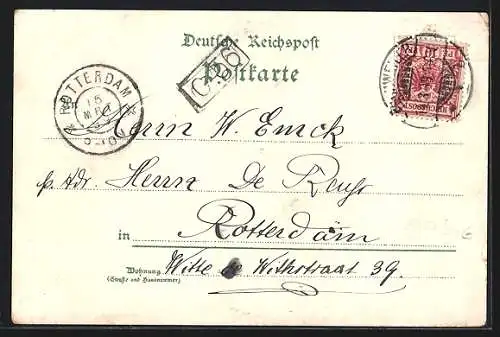 Deutsche Reichspost
Postkarte
ROTTERDAM
15
Herrn W. Emck
p. Adr. Herrn De Reus
in Rotterdam
Wohnung Witte de Withstraat 39.
(Straße und Hausnummer)
REICHSPOST